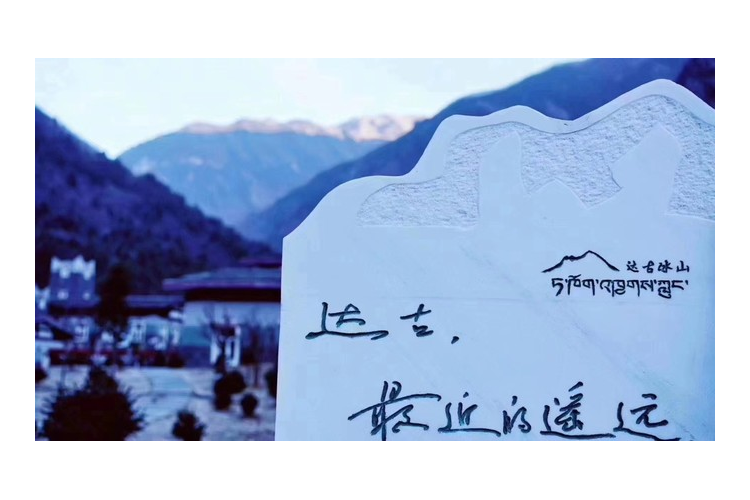 达古冰山
ཏ་ཁོག་འཁྱགས་ཀླུང་
达古,
最近的遥远